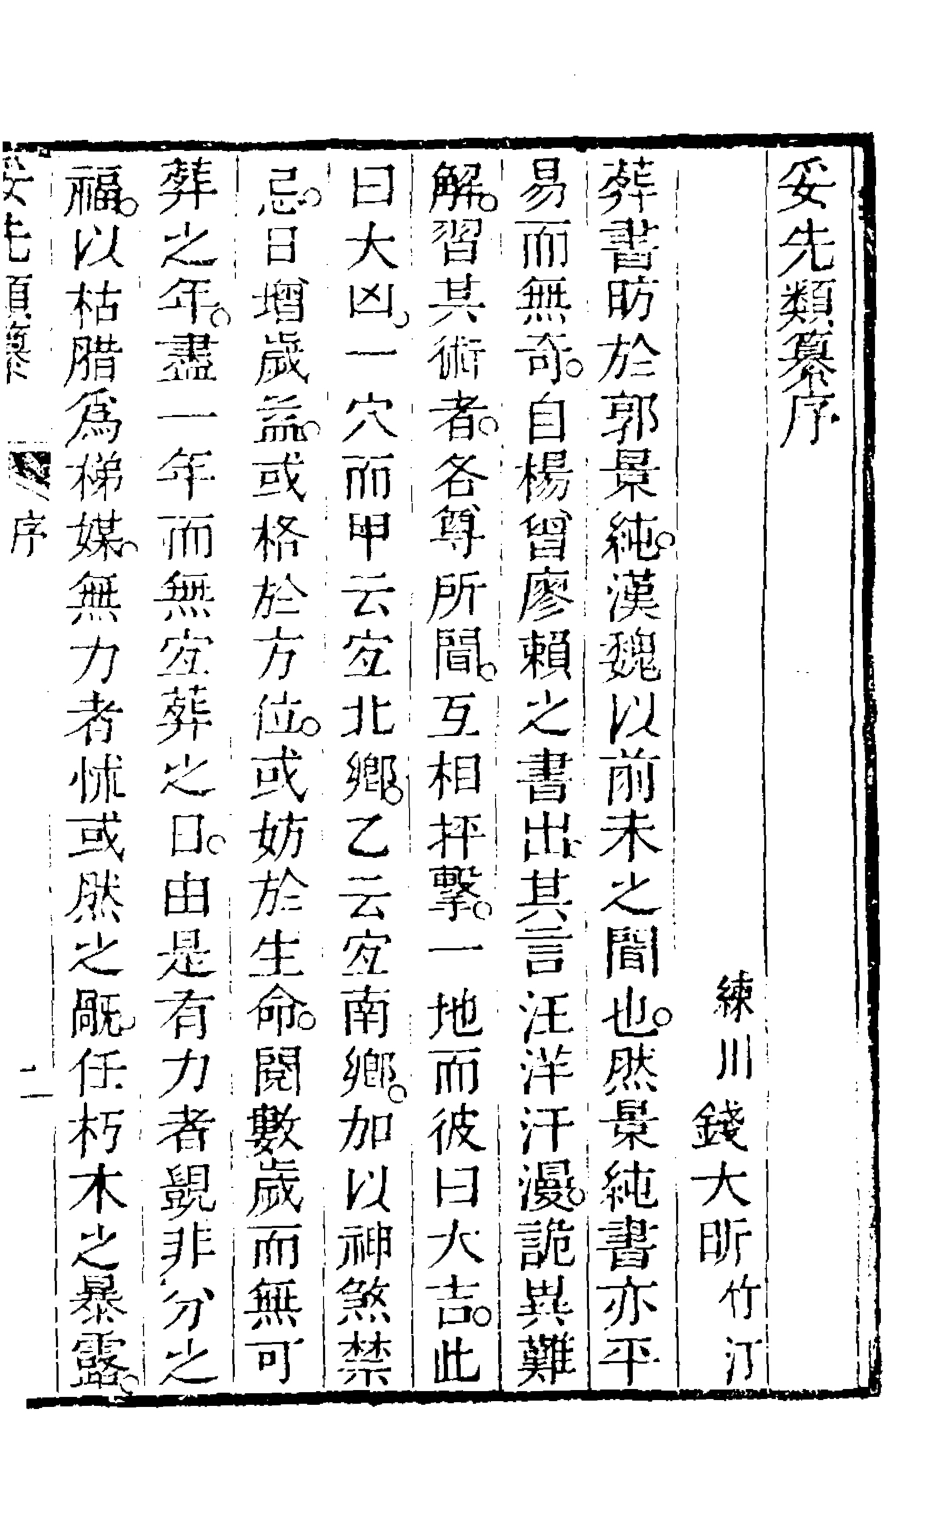 妥先類纂序
練川錢大昕竹汀
葬書昉於郭景純。漢魏以前未之聞也。然景純書亦平
易而無奇。自楊曾廖賴之書出。其言汪洋汗漫。詭異難
解。習其術者。各尊所聞。互相抨擊。一地而彼曰大吉。此
曰大凶。一穴而甲云宐北鄉。乙云宐南鄉。加以神煞禁
忌。日增歲益。或格於方位。或妨於生命。閱數歲而無可
葬之年。盡一年而無宐葬之日。由是有力者覬非分之
福。以枯腊爲梯媒。無力者怵或然之旤。任朽木之暴露。
妥先類纂 序 二